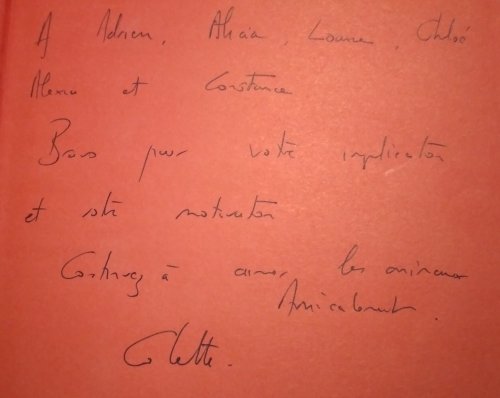 A Adrien, Alicia, Louna, Chloé
Alexia et Constance
Bravo pour votre implication
et votre motivation
Continuez à aimer les animaux
Amicalement.
Colette.